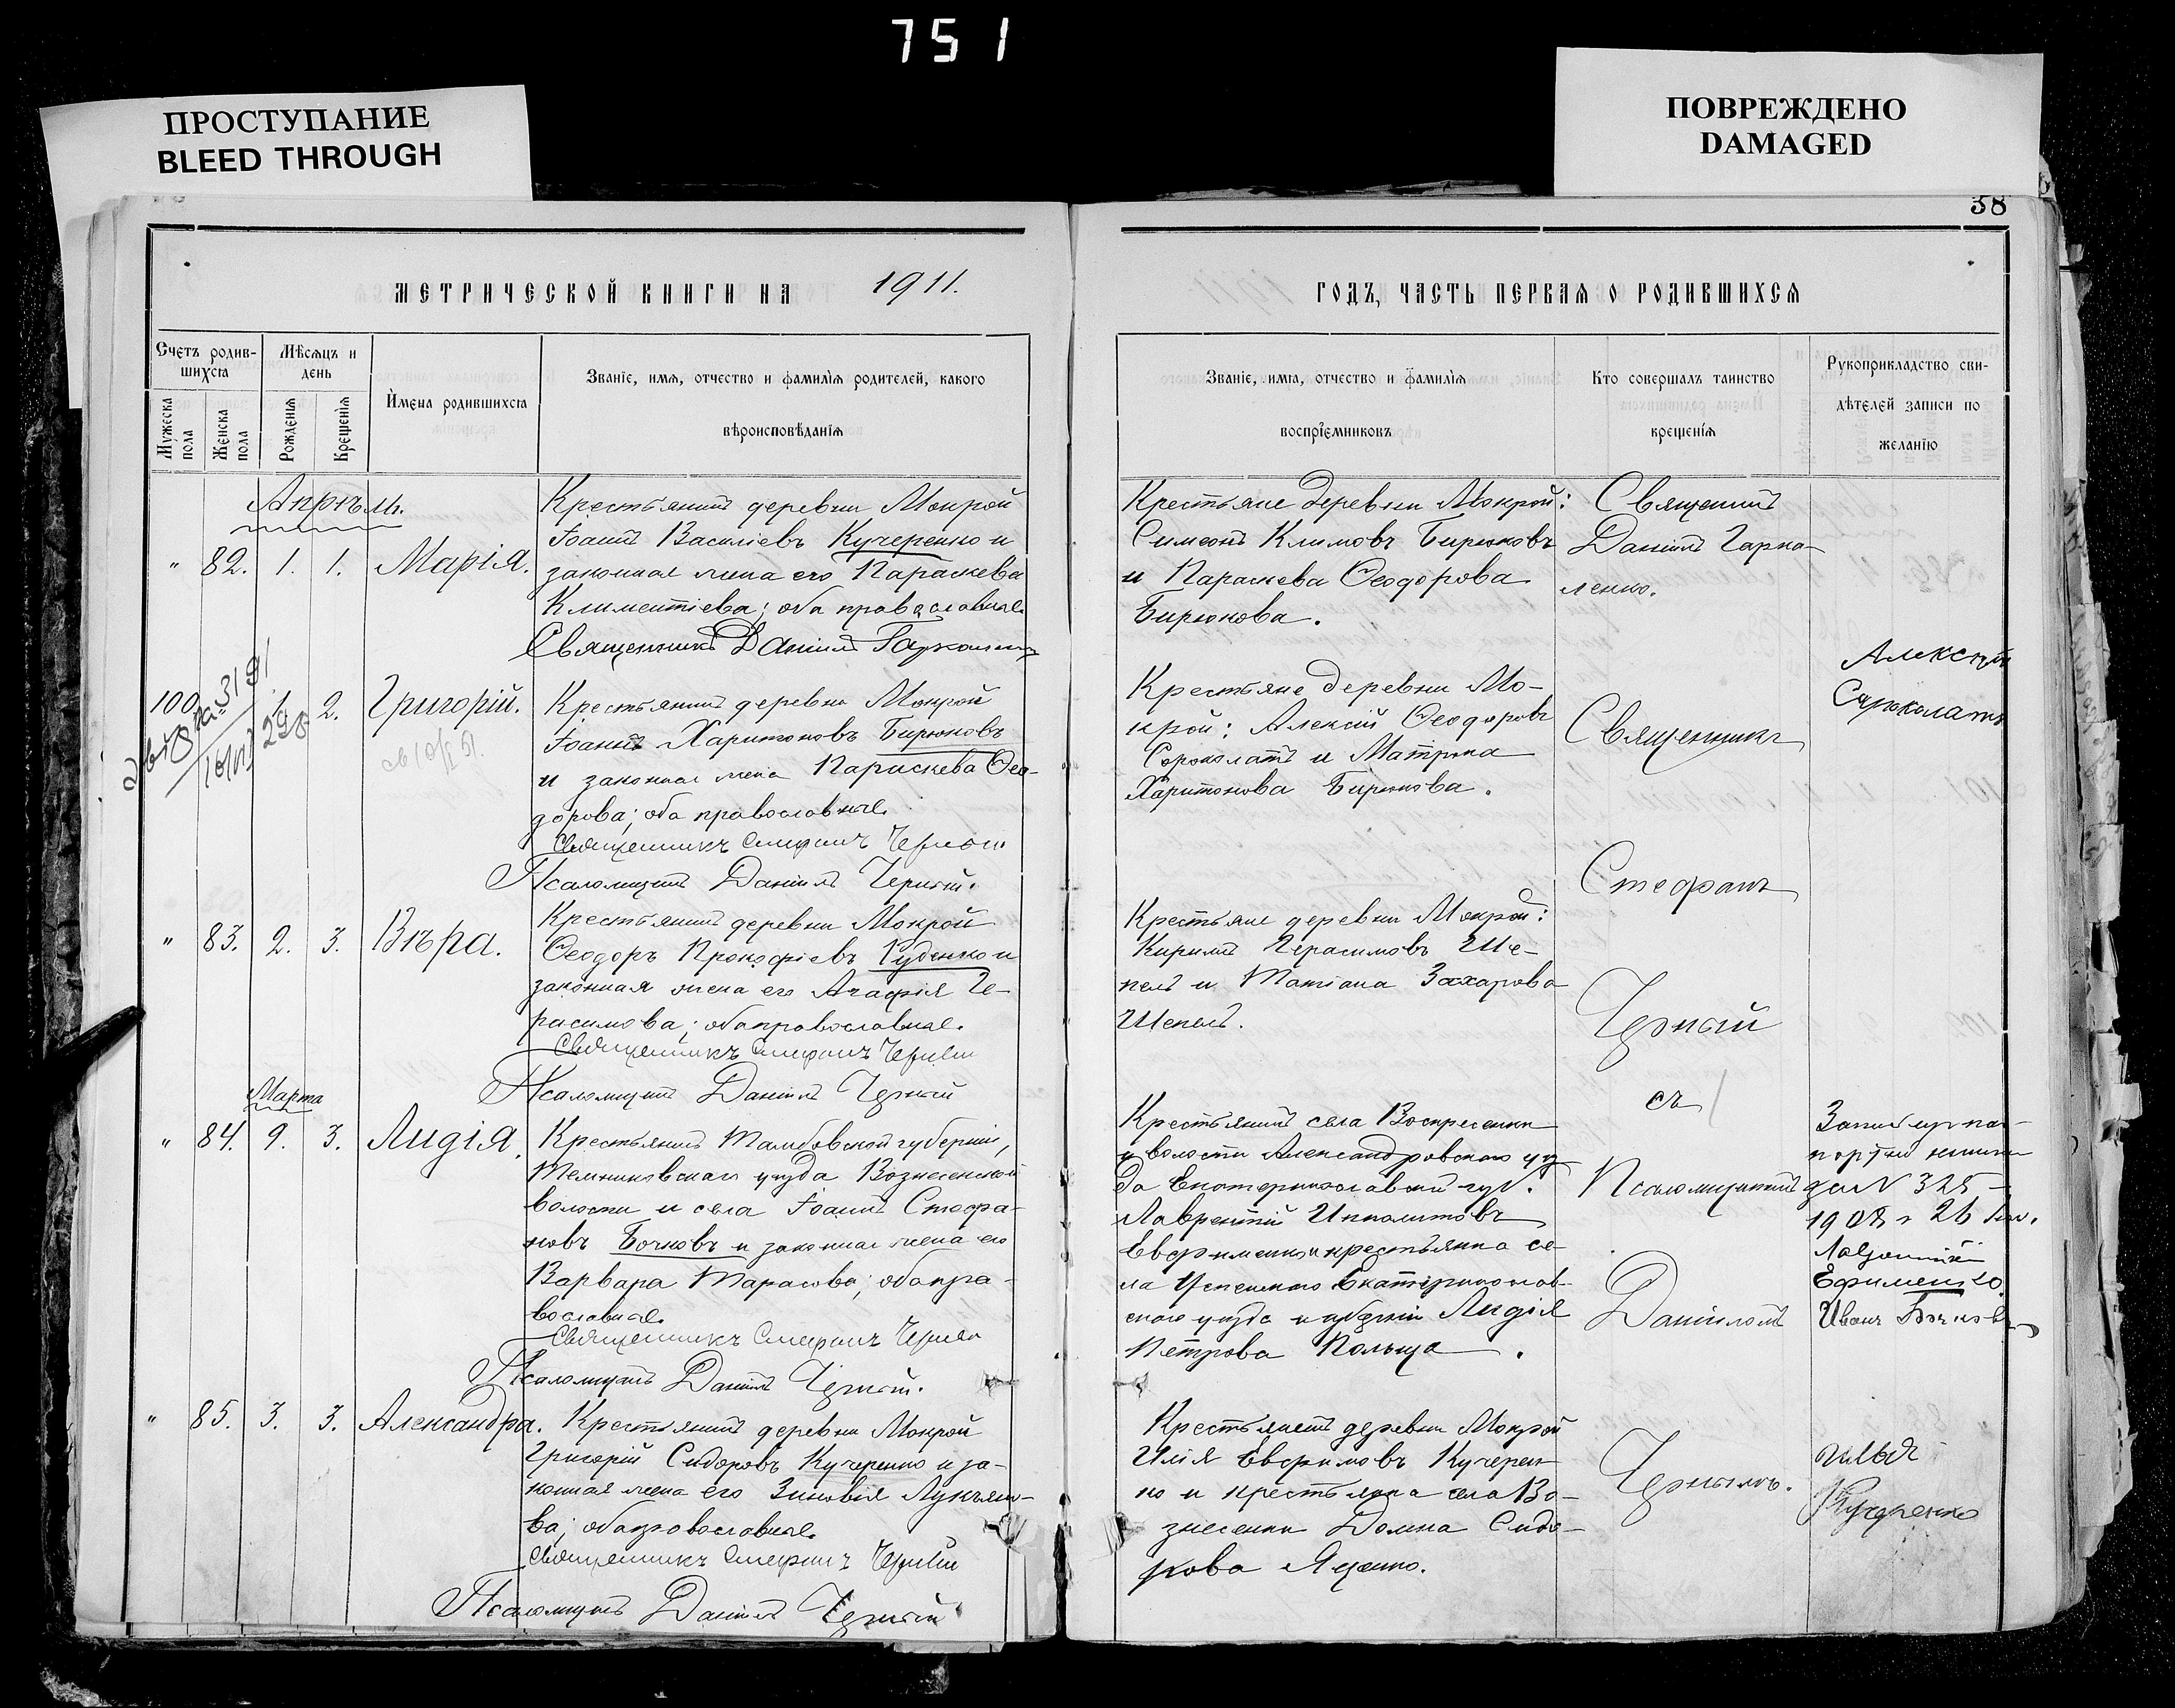 751
ПРОСТУПАНИЕ
BLEED THROUGH
ПОВРЕЖДЕНО
DAMAGED
38
МЕТРИЧЕСКОЙ КНИГИ НА 1911.
Счетъ родив-
шихся
Мѣсяцъ и
день
Мужеска
пола
Женска
пола
Рожденія
Крещенія
Имена родившихся
Званіе, имя, отчество и фамилія родителей, какого
вѣроисповѣданія
Апрѣль.
" 82. 1. 1. Марія.
Крестьянинъ деревни Мокрой
Іоаннъ Василіевъ Кучеренко и
законная жена его Параскева
Климентіева; оба православные.
Священникъ Даніилъ
100 1. 2. Григорій.
Крестьянинъ деревни Мокрой
Іоаннъ Харитоновъ Бирюковъ
и законная жена Параскева Ѳео-
дорова; оба православные.
Священникъ Стефанъ Черный
Псаломщикъ Даніилъ Черный.
" 83. 2. 3. Вѣра.
Крестьянинъ деревни Мокрой
Ѳеодоръ Прокофіевъ Руденко и
законная жена его Агафія Ге-
расимова; оба православные.
Священникъ Стефанъ Черный
Псаломщикъ Даніилъ Черный
Марта
" 84. 9. 3. Лидія.
Крестьянинъ Тамбовской губерніи,
Темниковскаго уѣзда Вознесенской
волости и села Іоаннъ Стефа-
новъ Бочковъ и законная жена его
Варвара Тарасова; оба пра-
вославные.
Священникъ Стефанъ Черный
Псаломщикъ Даніилъ Черный.
" 85. 3. 3. Александра.
Крестьянинъ деревни Мокрой
Григорій Сидоровъ Кучеренко и за-
конная жена его Зиновія Лукьяно-
ва; оба православные.
Священникъ Стефанъ Черный
Псаломщикъ Даніилъ Черный
ГОДЪ, ЧАСТЬ ПЕРВАЯ О РОДИВШИХСЯ
Званіе, имя, отчество и фамилія
воспріемниковъ
Кто совершалъ таинство
крещенія
Рукоприкладство сви-
дѣтелей записи по
желанію
Крестьяне деревни Мокрой:
Симеонъ Климовъ Бирюковъ
и Параскева Ѳеодорова
Бирюкова.
Крестьяне деревни Мо-
крой: Алексій Ѳеодоровъ
Сороколатъ и Матрона
Харитонова Бирюкова.
Крестьяне деревни Мокрой:
Кириллъ Герасимовъ Ше-
пель и Татіана Захарова
Шепель.
Крестьянинъ села Воскресенки
и волости Александровскаго уѣз
да Екатеринославской губ.
Лаврентій Ипполитовъ
Евфименко и крестьянка се-
ла Успенскаго Екатеринослав-
скаго уѣзда и губерніи Лидія
Петрова Польща.
Крестьянинъ деревни Мокрой
Илія Евфимовъ Кучерен-
ко и крестьянка села Во-
знесенки Домна Сидо-
рова Яценко.
Священникъ
Даніилъ Гарка-
ленко.
Священникъ
Стефанъ
Черный
съ
Псаломщикомъ
Даніиломъ
Чернымъ.
Алексѣй
Сароколатъ
за № 325
1908 г 26
Ефименко.
Иванъ Бочковъ
Илья
Кучеренко